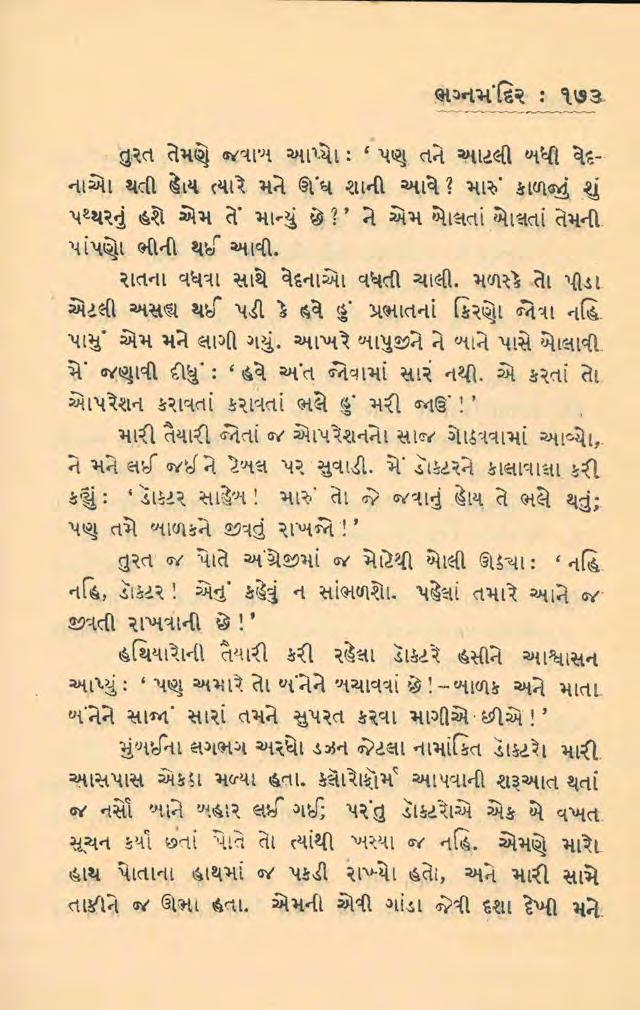 ભગ્નમંદિર : ૧૭૩
તુરત તેમણે જવાબ આપ્યો : ‘ પણ તને આટલી બધી વેદ-
નાઓ થતી હોય ત્યારે મને ઊંઘ શાની આવે ? મારું કાળજું શું
પથ્થરનું હશે એમ તેં માન્યું છે ?’ ને એમ બોલતાં બોલતાં તેમની
પાંપણો ભીની થઈ આવી.
રાતના વધવા સાથે વેદનાઓ વધતી ચાલી. મળસ્કે તો પીડા
એટલી અસહ્ય થઈ પડી કે હવે હું પ્રભાતનાં કિરણો જોવા નહિ
પામું એમ મને લાગી ગયું. આખરે બાપુજીને ને બાને પાસે બોલાવી
મેં જણાવી દીધું : ‘ હવે અંત જોવામાં સારં નથી. એ કરતાં તો
ઓપરેશન કરાવતાં કરાવતાં ભલે હું મરી જાઉં !’
મારી તૈયારી જોતાં જ ઓપરેશનનો સાજ ગોઠવવામાં આવ્યો,
ને મને લઈ જઈ ને ટેબલ પર સુવાડી. મેં ડૉકટરને કાલાવાલા કરી
કહ્યું : ‘ ડૉકટર સાહેબ ! મારું તો જે જવાનું હોય તે ભલે થતું;
પણ તમે બાળકને જીવતું રાખજો !’
તુરત જ પોતે અંગ્રેજીમાં જ મોટેથી બોલી ઊઠ્યા : ‘ નહિ
નહિ, ડૉકટર ! એનું કહેવું ન સાંભળશો. પહેલાં તમારે આને જ
જીવતી રાખવાની છે !’
હથિયારોની તૈયારી કરી રહેલા ડૉકટરે હસીને આશ્વાસન
આપ્યું : ‘ પણ અમારે તો બંનેને બચાવવાં છે !–બાળક અને માતા
બંનેને સાજાં સારાં તમને સુપરત કરવા માગીએ છીએ !’
મુંબઈના લગભગ અરધો ડઝન જેટલા નામાંકિત ડૉકટરો મારી
આસપાસ એકઠા મળ્યા હતા. કલૉરોફૉર્મ આપવાની શરૂઆત થતાં
જ નર્સો બાને બહાર લઈ ગઈ; પરંતુ ડૉકટરોએ એક બે વખત
સૂચન કર્યાં છતાં પોતે તો ત્યાંથી ખસ્યા જ નહિ. એમણે મારો
હાથ પોતાના હાથમાં જ પકડી રાખ્યો હતો, અને મારી સામે
તાકીને જ ઊભા હતા. એમની એવી ગાંડા જેવી દશા દેખી મને